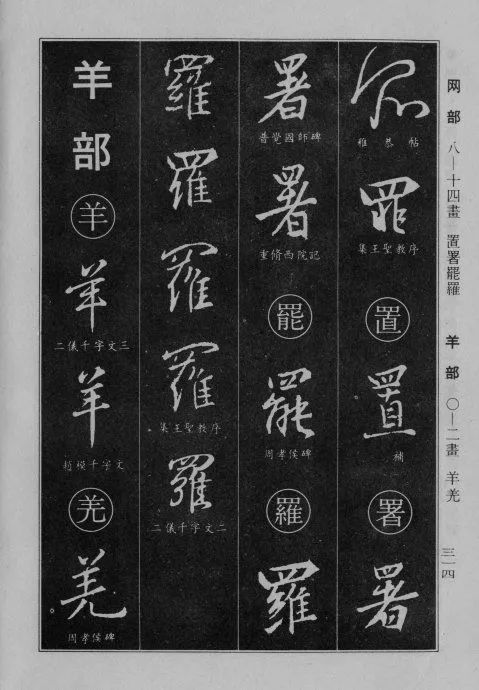 网部 八—十四畫 置署罷羅 羊部 〇—二畫 羊羌 三一四
雅恭帖
罪
集王聖教序
置
置
補
署
署
署
普覺國師碑
署
重脩西院記
罷
罷
周孝侯碑
羅
羅
羅
羅
羅
羅
集王聖教序
羅
二儀千字文二
羊部
羊
羊
二儀千字文三
羊
趙模千字文
羌
羌
周孝侯碑